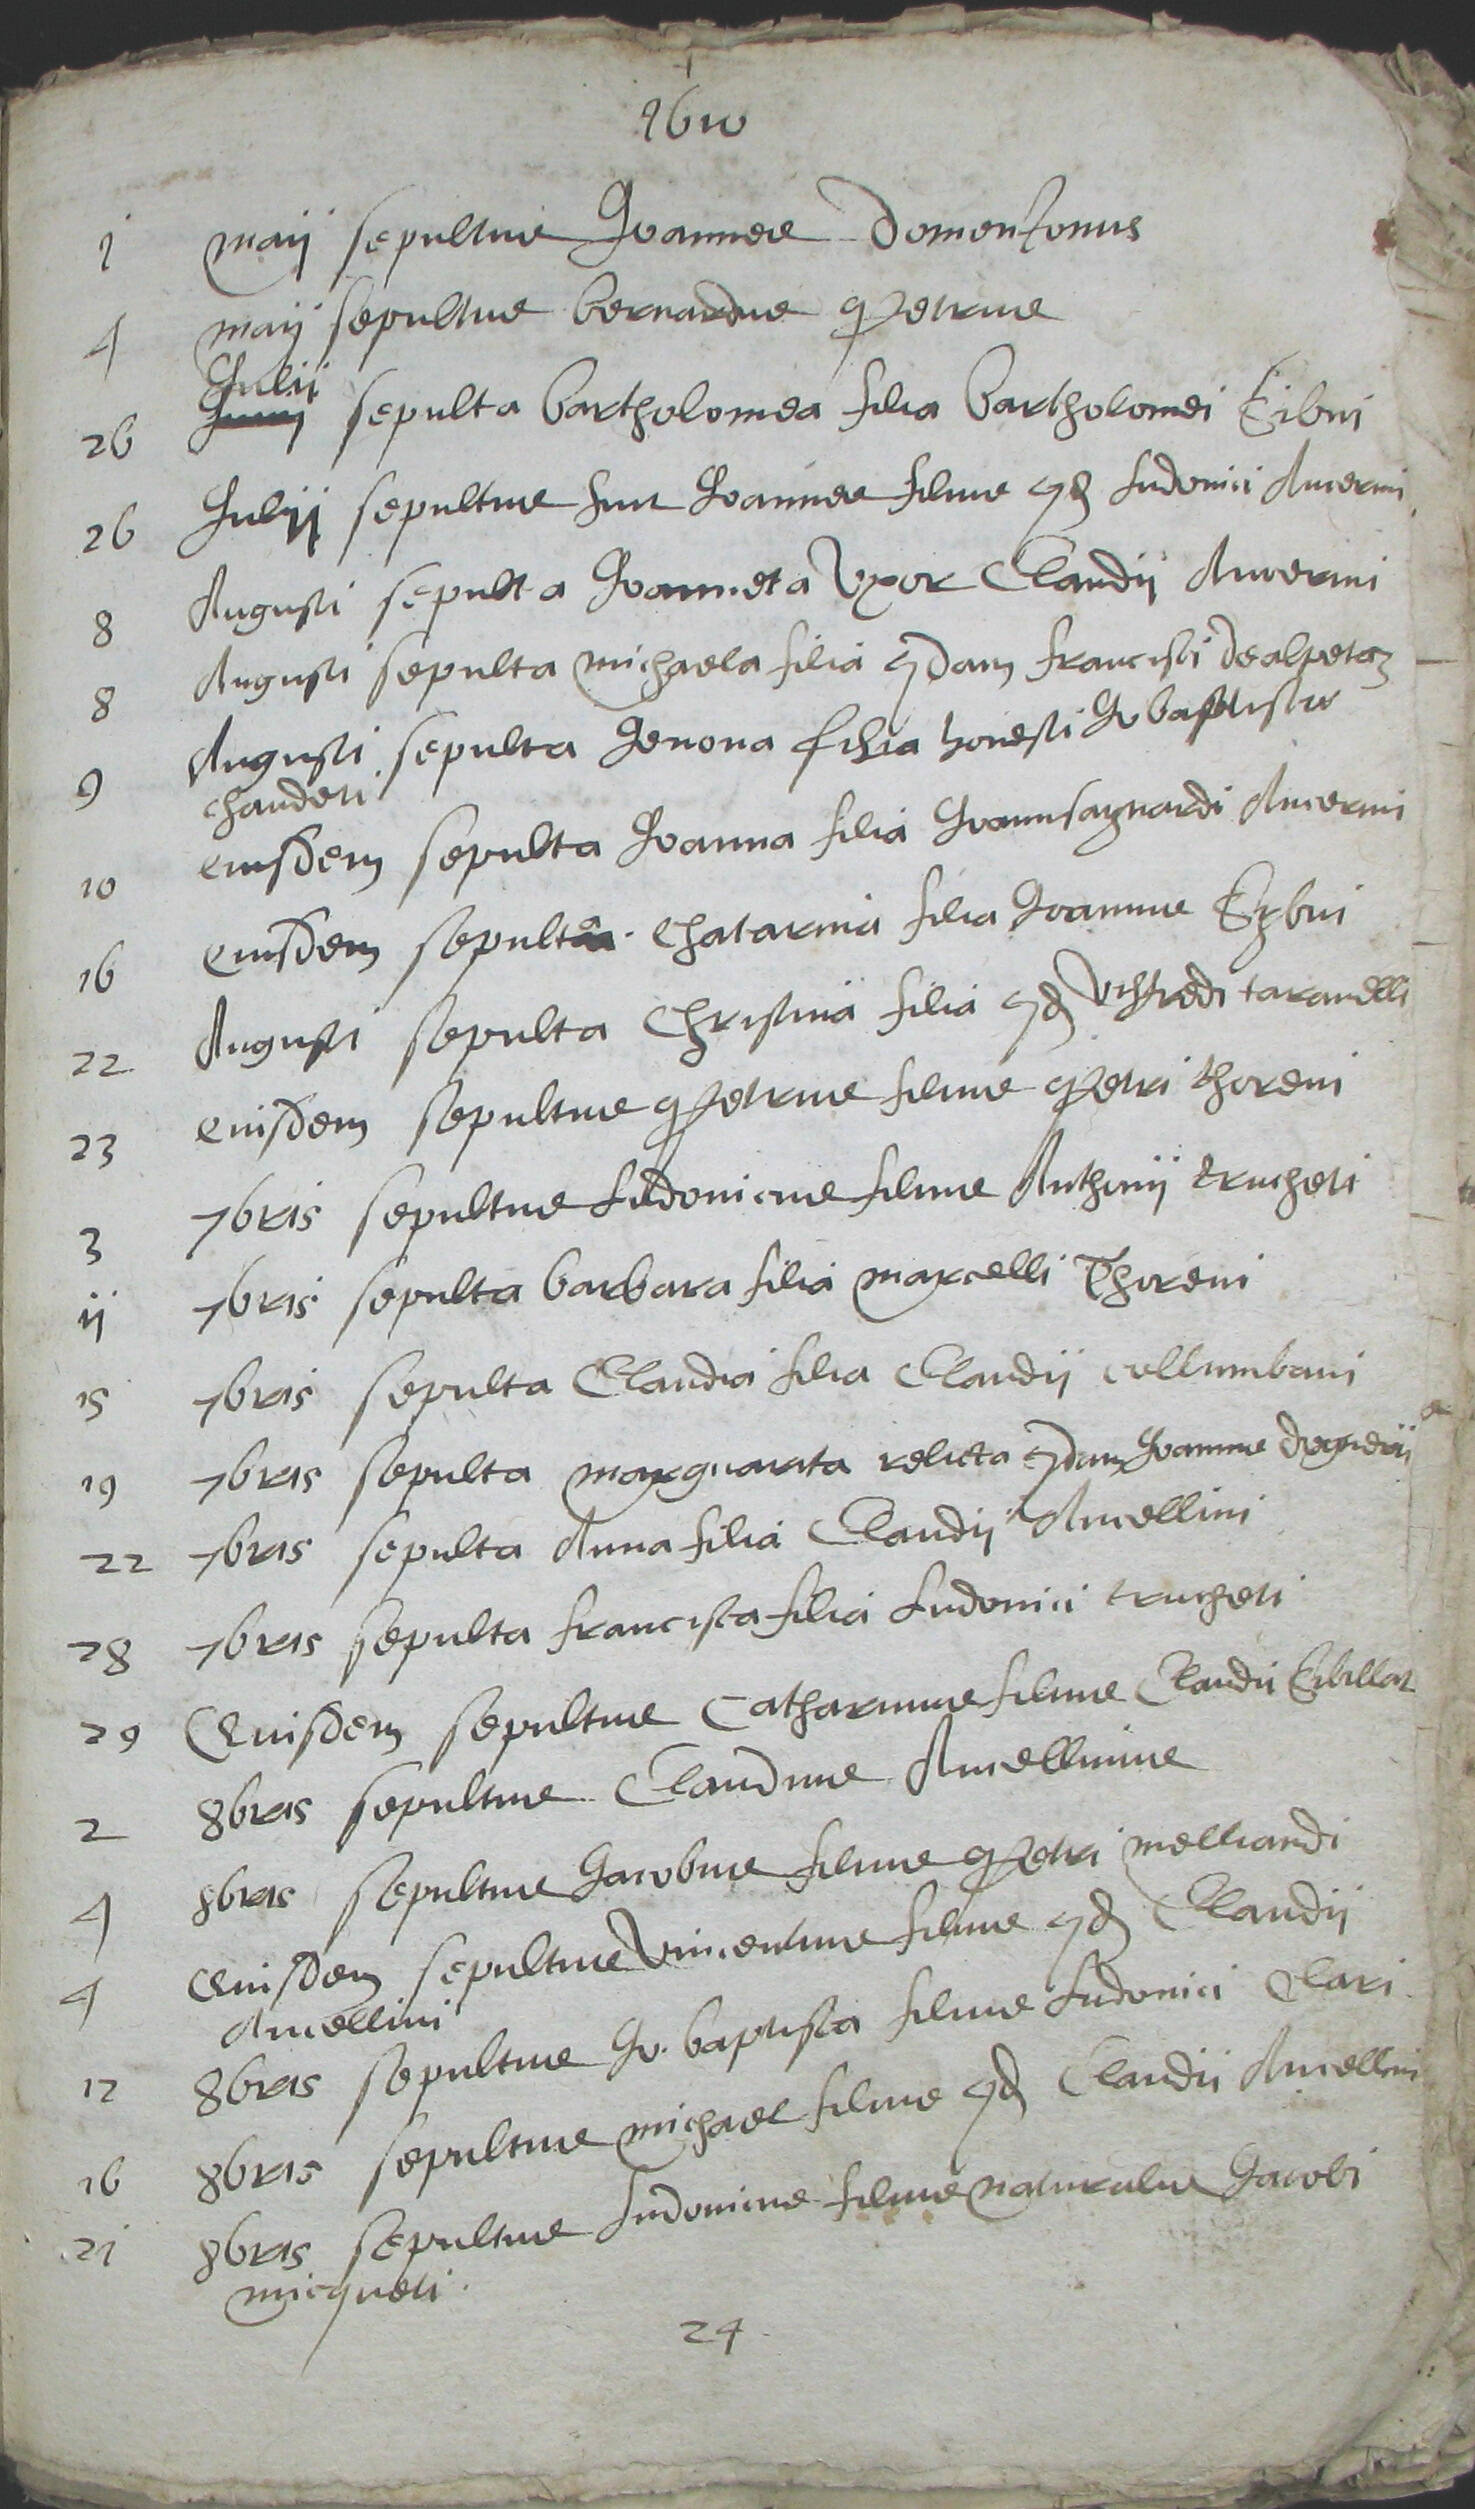 1610
1 maij sepultus Joannes Domenzonus
4 maij sepultus bernardus petrus
Julij
26 Junij sepulta bartholomea filia bartholomei Eibini
26 Julij sepultus fuit Joannes filius qd Ludovici Ancermi
8 Augusti sepulta Joanneta Uxor Claudij Ancermi
8 Augusti sepulta michaela filia qdam francisci dealpetaz
9 Augusti sepulta Jenona filia honesti Jo baptistæ
chaudeti
10 eiusdem sepulta Joanna filia Ancermi
16 eiusdem sepulta chatarina filia Joannis
22 Augusti sepulta Christina filia qd taravelli
23 eiusdem sepultus petrus filius petri thoreni
3 7bris sepultus Ludovicus filius Anthonij trucheti
ij 7bris sepulta barbara filia marcelli Thoreni
15 7bris sepulta Claudia filia Claudij collumbani
19 7bris sepulta marguarita relicta qdam Joannis
22 7bris sepulta Anna filia Claudij Ancellini
28 7bris sepulta francisca filia Ludovici trucheti
29 Eiusdem sepultus Catharinus filius Claudii
2 8bris sepultus Claudius Ancellinus
4 8bris sepultus Jacobus filius petri melliandi
4 Eiusdem sepultus Vincentius filius qd Claudij
Ancellini
12 8bris sepultus Jo. baptista filius Ludovici Clari
16 8bris sepultus michael filius qd Claudii Ancellini
21 8bris sepultus Ludovicus filius naturalis Jacobi
micqueti.
24